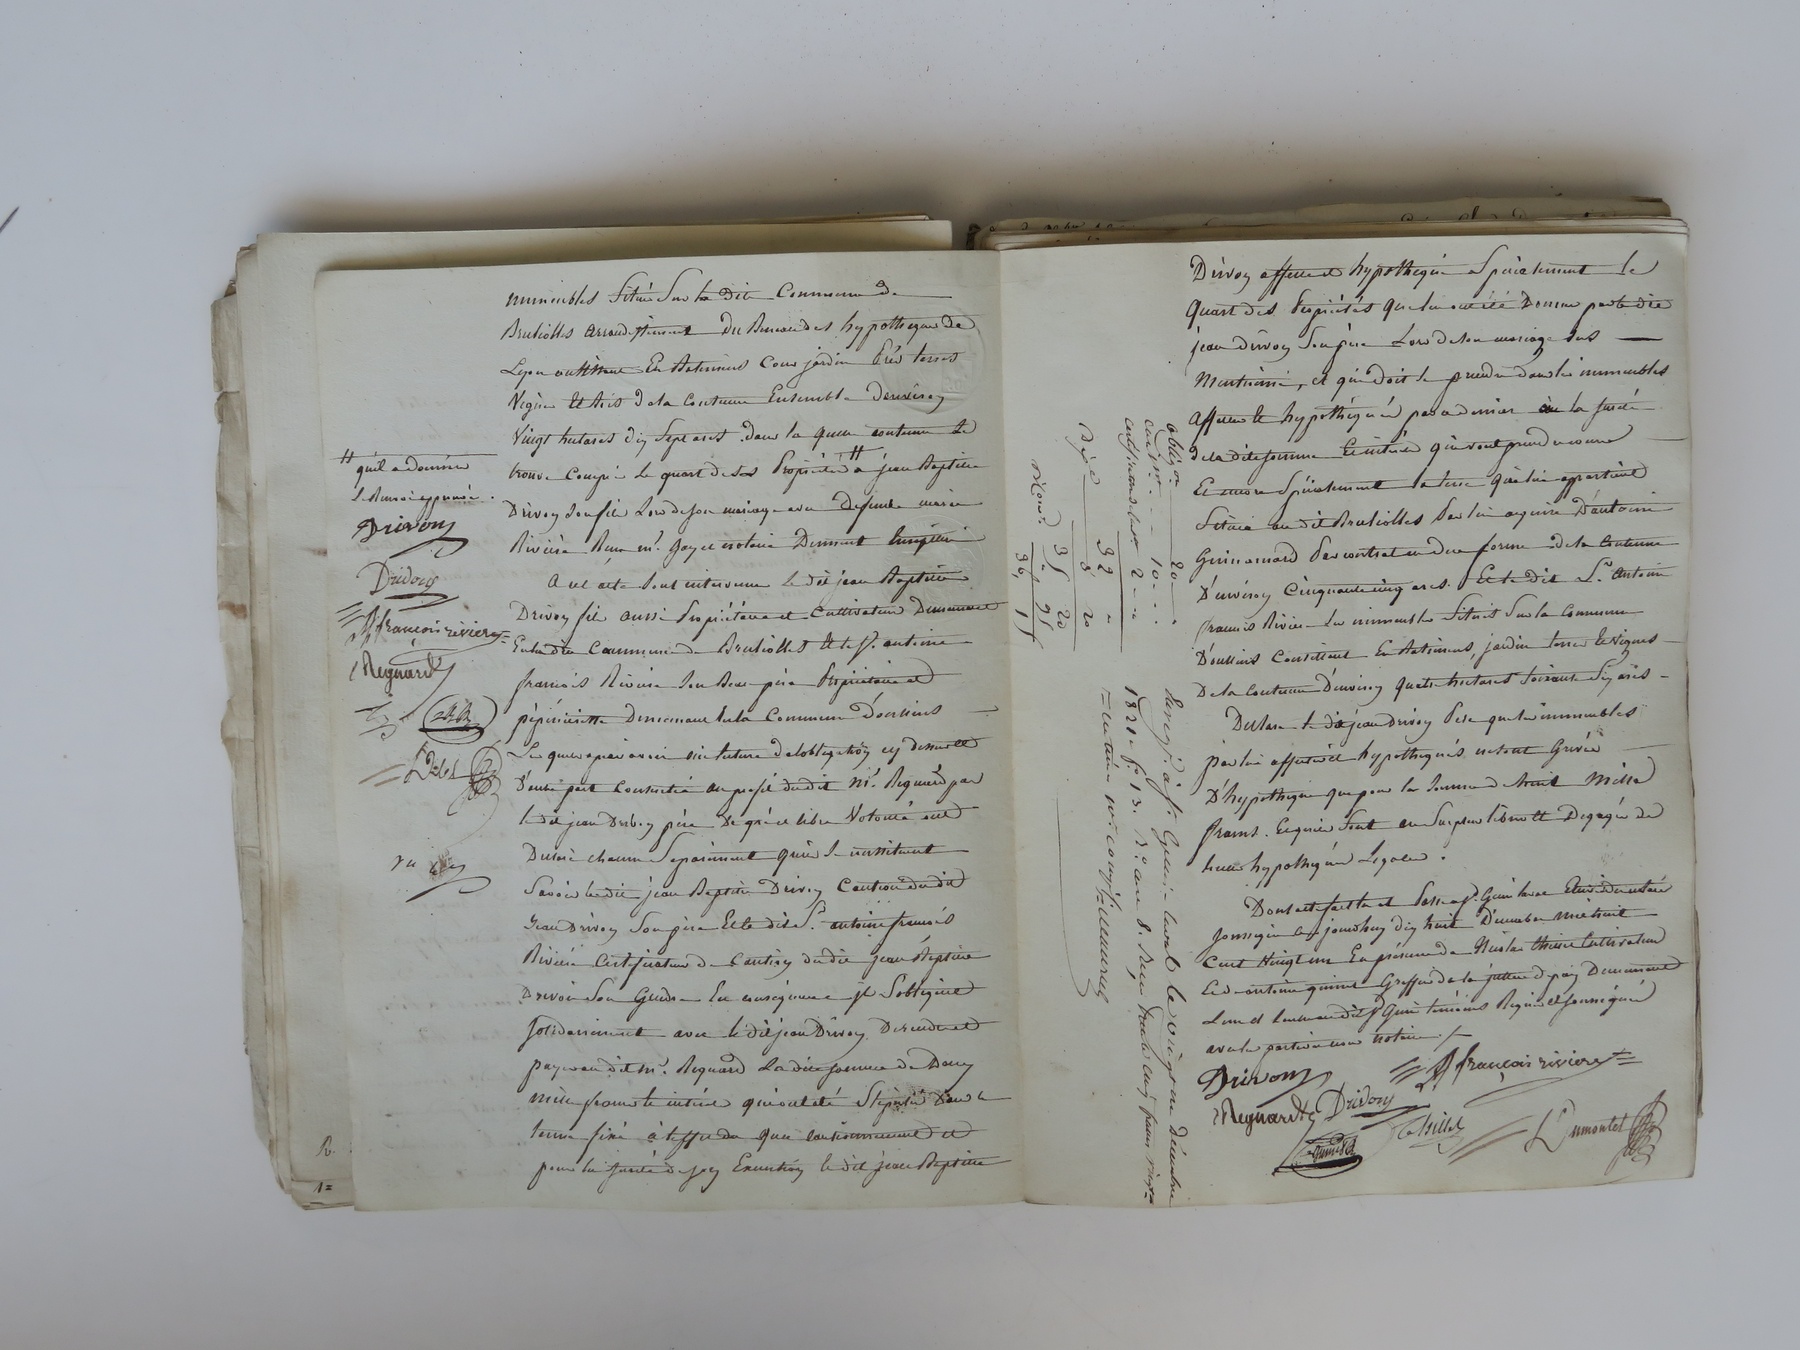 immeubles Situés Sur la dite Commune de
Brullioles arrondissement du Bureau des hypotheques de
Lyon consistent En Batimens Cour jardin Prés terres
Vignes et bois de la Contenue Ensemble d'environ
Vingt hectares dix Sept ares. dans la quelle contenue Se
trouve Compris le quart de Ses Propriétés # à jean Baptiste
Drivon Son fils Lors de Son mariage avec défunte marie
Rivière Reçu me. Gayet notaire
A cet acte Sont intervenus le dit jean Baptiste
Drivon fils aussi Propriétaire et Cultivateur Demeurant
En la dite Commune de Brullioles et le Sr. antoine
francois Rivière Son Beau-père Propriétaire et
pépiniériste Demeurant Sur la Commune d'oullins
Les quels après avoir eu lecture de l'obligation cy dessus et
D'autre part Contractée au profit du dit Mr. Reynard par
le dit jean Drivon père De gré et libre Volonté ont
Déclaré chacun Séparément qu'ils Se constituent
Savoir le dit jean Baptiste Drivon Caution du dit
jean Drivon Son père Et le dit Sr. antoine francois
Rivière Certificateur de Caution du dit jean Baptiste
Drivon Son Gendre En conséquence ils S'obligent
Solidairement avec le dit jean Drivon De rendre et
payer au dit mr. Reynard La dite Somme de Deux
mille francs et intérêts qui ont été Stipulés Dans le
terme fixé à l'effet du quel cautionnement et
pour la Sureté de Son Exécution le dit jean Baptiste
# qu'il a donnée
le Renvoi approuvé.
Drivon
Drivon
francois riviere
Reynard
Vu
Drivon affecte et hypothèque Spécialement le
quart des Propriétés que lui ont été Données par le dit
jean Drivon Son père Lors de Son mariage Sus
Mentionné, et qui doit Se prendre dans les immeubles
Affectés et hypothéqués par ce dernier à la Sureté
de la dite Somme et intérêts qui vont prendre cours
Et encore Spécialement la terre qui lui appartient
Située au dit Brullioles Par lui acquise D'antoine
Guinamard Par contrat en due forme de la Contenue
D'environ Cinquante cinq ares. Et le dit Sr. antoine
francois Rivière Les immeubles Situés Sur la Commune
D'oullins Consistent En Batimens, jardin terre et Vignes
De la Contenue d'environ quatre hectares Soixante Six ares
Déclare le dit jean Drivon Père que les immeubles
par lui affectés et hypothéqués ne Sont Grévés
D'hypotheque que pour la Somme de trois mille
francs. Et qu'ils Sont au Surplus libres et Dégagés de
toute hypothèque Légale.
Dont acte fait et Passé à St. Genis laval Etude du notaire
Soussigné Ce jourd'huy dix huit Décembre mil huit
Cent Vingt un En présence de Nicolas Cultivateur
Et antoine Greffier de la justice de paix Demeurant
L'un et l'autre au dit St. Genis temoins Requis et Soussignés
avec les parties et nous notaire
Drivon
francois riviere
Reynard Drivon
Dumontet
oblig.on 20
caut.on 10
certificat de caut. 2
32
Dixe 3 20
35 20
36, 15
Enreg.é à St. Genis laval le vingt un Décembre
1821 f.o 13. R.o case 8. Reçu trente cinq francs vingt
centimes compris